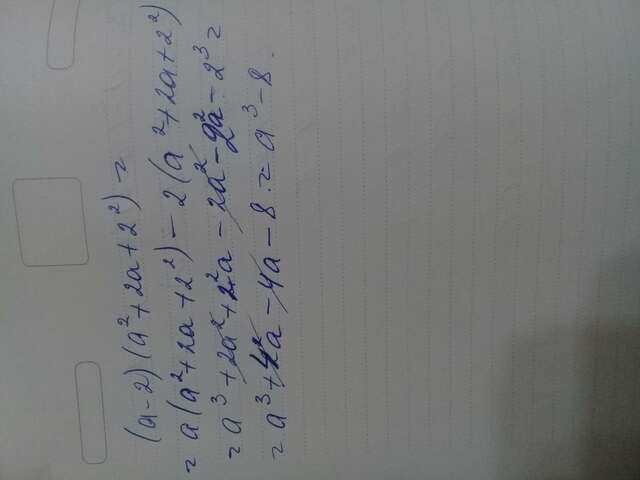 (a-2)(a²+2a+2²) =
= a(a²+2a+2²) - 2(a²+2a+2²)
= a³+2a²+2²a - 2a² - 2²a - 2³ =
= a³+4a - 4a - 8. = a³ - 8.